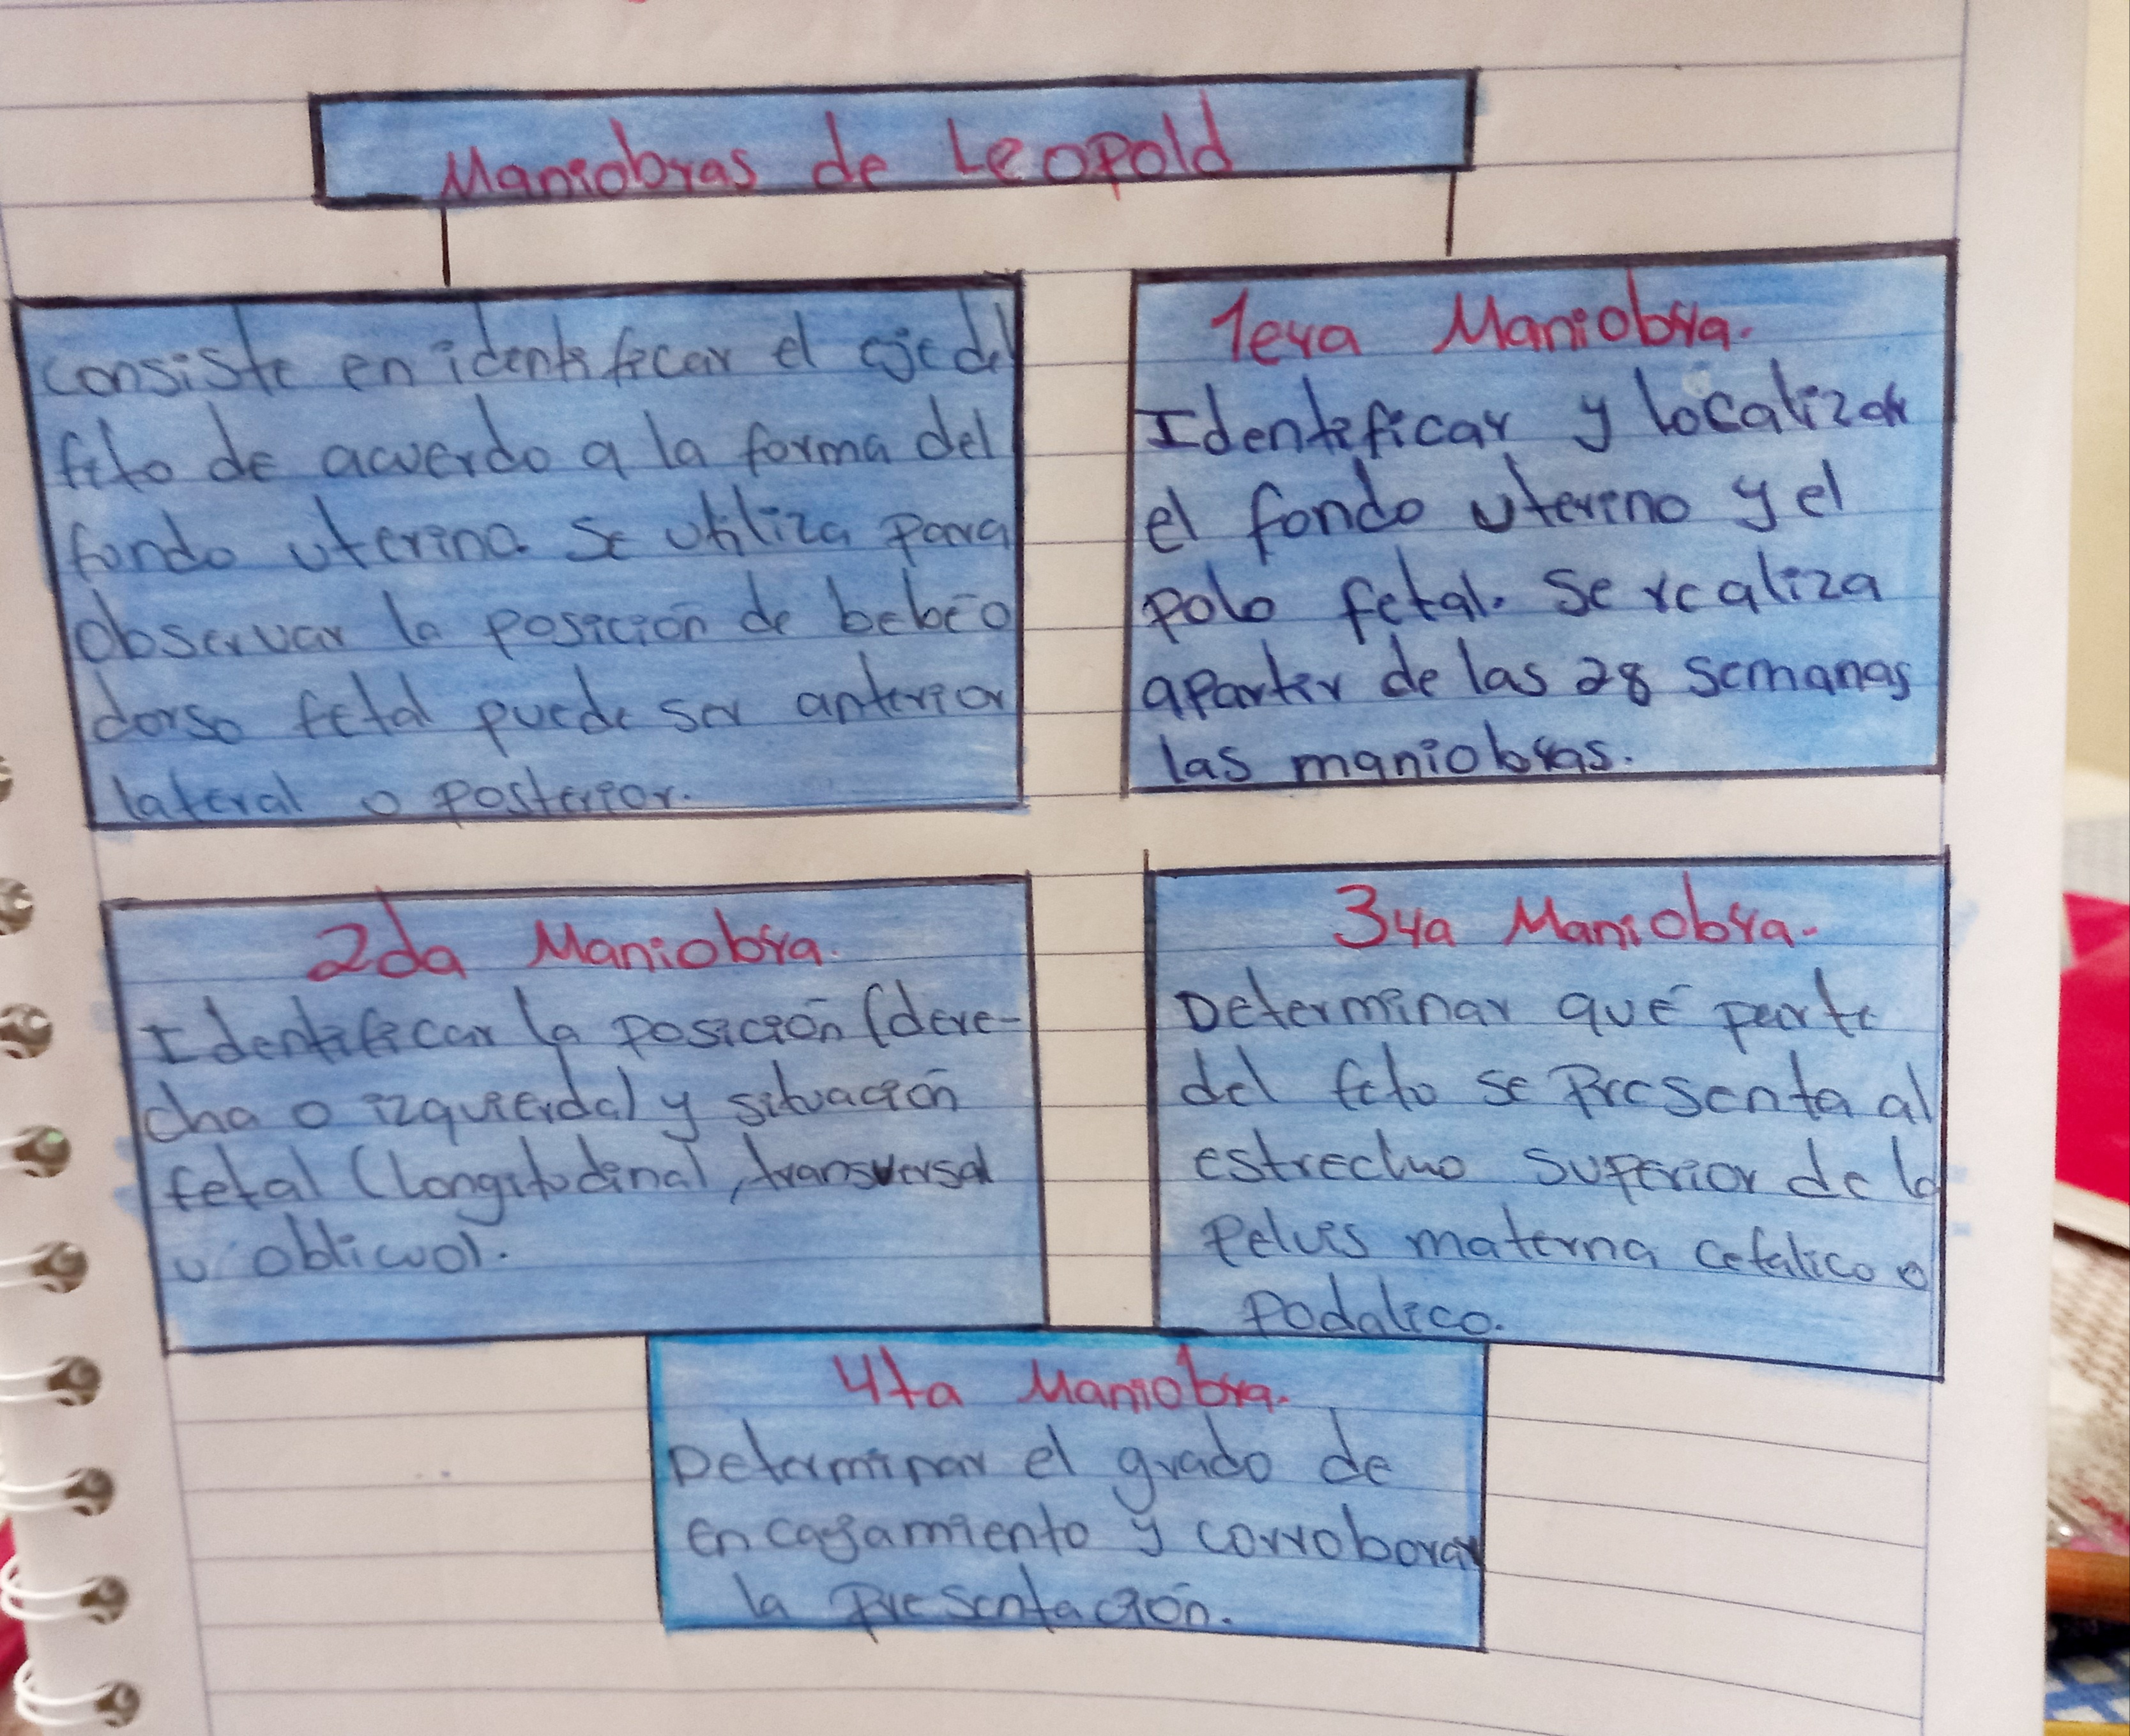 Maniobras de Leopold
consiste en identificar el eje del
feto de acuerdo a la forma del
fondo uterino. Se utiliza para
observar la posición de bebé o
dorso fetal puede ser anterior
lateral o posterior.
1era Maniobra.
Identificar y localizar
el fondo uterino y el
polo fetal. Se realiza
apartir de las 28 semanas
las maniobras.
2da Maniobra.
Identificar la posición (dere-
cha o izquierda) y situación
fetal (longitudinal, transversal
u oblicuo).
3ra Maniobra.
Determinar qué parte
del feto se presenta al
estrecho superior de la
pelvis materna cefalico o
podalico.
4ta Maniobra.
Determinar el grado de
encajamiento y corroborar
la presentación.